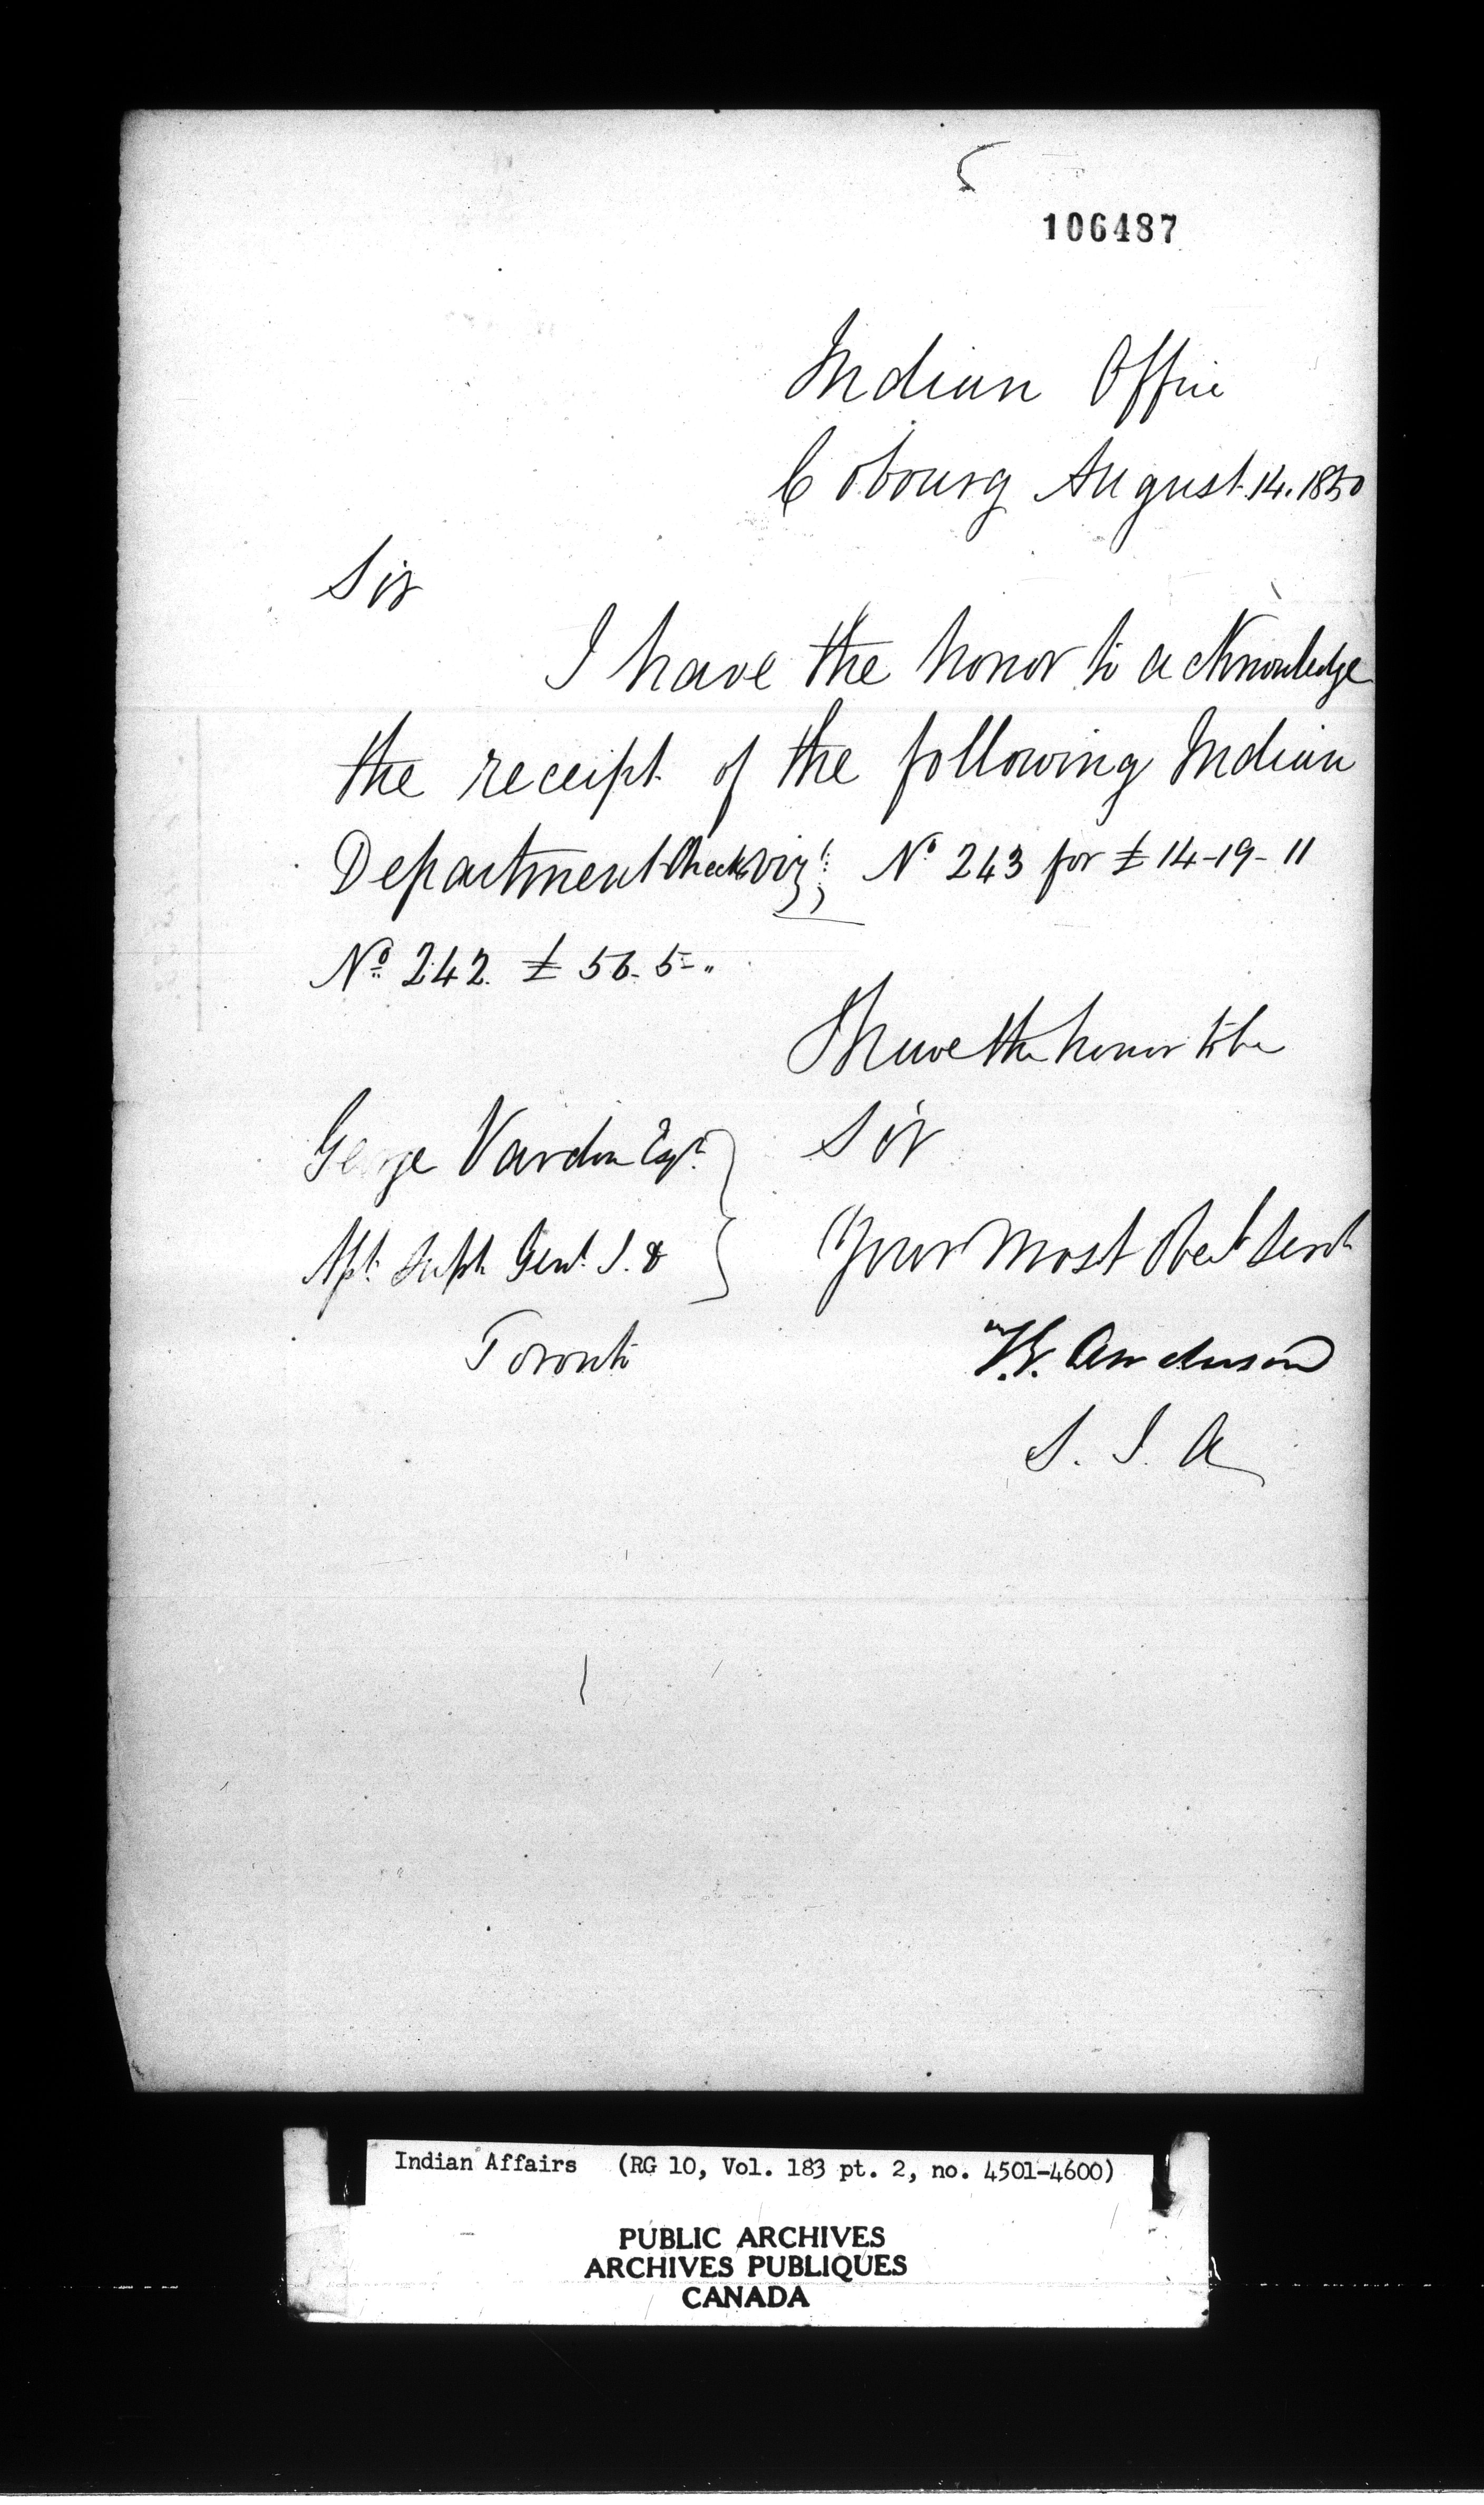 106487
Indian Office
Cobourg August 14. 1850
Sir
I have the honor to acknowledge
the receipt of the following Indian
Department Checks viz: No 243 for £14-19-11
No 242. £56.5-"
I have the honor to be
George Vardon Esqr. Sir
Asst. Supt. Genl. I. A Your most Obet Servt
Toronto T.G. Anderson
S. I. A
Indian Affairs (RG 10, Vol. 183 pt. 2, no. 4501-4600)
PUBLIC ARCHIVES
ARCHIVES PUBLIQUES
CANADA